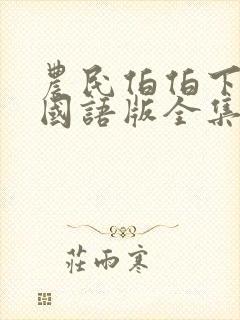 農民伯伯下
國語版全集
莊雨寒